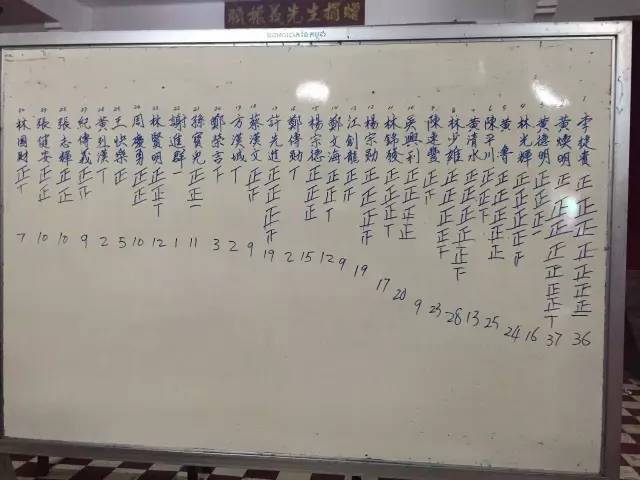 振義先生捐贈
1 李健貴 正正正正正正正一 36
2 黃煥明 正正正正正正正丅 37
3 黃德明 正正正一 16
4 林光輝 正正正正止 24
5 黃壽 正正正正正 25
6 陳平川 正正下 13
7 黃清水 正正正正正下 28
8 林少雄 正正正正下 23
9 陳達豐 正止 9
10 吳興利 正正正正 20
11 林錦發 正正正丅 17
12 楊宗勛 正正正止 19
13 江劍龍 正止 9
14 鄭文海 正正丅 12
15 楊宗德 正正正 15
16 鄭傳勛 丅 2
17 許先進 正正正止 19
18 蔡漢文 正止 9
19 方漢城 丅 2
20 鄭榮吉 下 3
21 徐寶光 正正一 11
22 謝進群 一 1
23 林賢明 正正丅 12
24 周慶勇 正正 10
25 王快樂 正 5
26 黃烈漢 丅 2
27 紀傳義 正止 9
28 張志輝 正正 10
29 張健安 正正 10
30 林國財 正丅 7